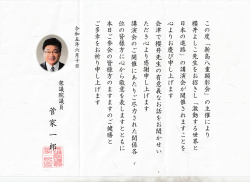 この度「新島八重顕彰会」の主催により
櫻井よしこ先生をお招きし「激動する世界と
日本の進路」の講演会が開催されますことを
心よりお慶び申し上げます
会津で櫻井先生の有意義なお話をお聞かせい
ただき心より感謝申し上げます
講演会のご開催にあたりご尽力された関係各
位の皆様方に心から敬意を表しますとともに
本日ご参会の皆様方の益々のご健勝と
ご多幸をお祈り申し上げます
令和五年六月十日
衆議院議員
菅家一郎